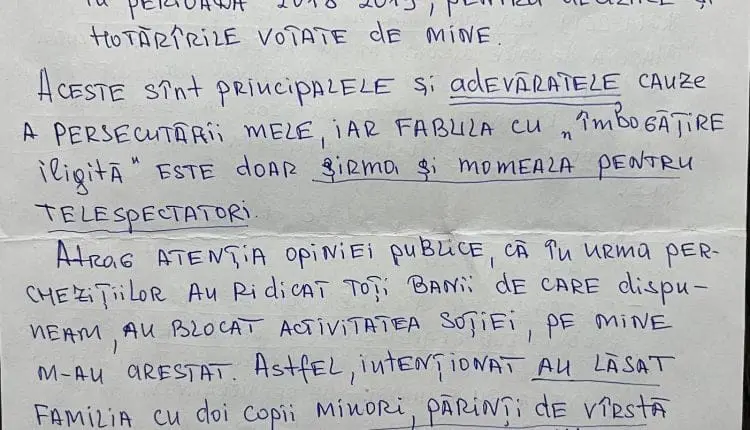 în PERIOADA 2018-2019, PENTRU DECIZIILE și
HOTĂRÎRILE VOTATE de MINE.
ACESTE sînt PRINCIPALELE și adevĂRATELE CAUZE
A PERSECUTĂRII MELE, iAR FABULA CU „îmbOGĂȚIRE
iligită" ESTE dOAR șirma și MOMEALA PENTRU
TELESPECTATORI.
Atrag ATENȚIA OPINIEI PUBLICE, CĂ în URMA PER-
CHEZIȚIILOR AU Ridicat TOȚI BANii dE CARE dispu-
NEAM, AU BLOCAT ACTIVITATEA SOȚIEI, PE MINE
M-AU ARESTAT. Astfel, intENȚIONAT AU LĂSAT
FAMILIA CU doi COPII MINORI, PĂRINȚI dE VÎRSTĂ